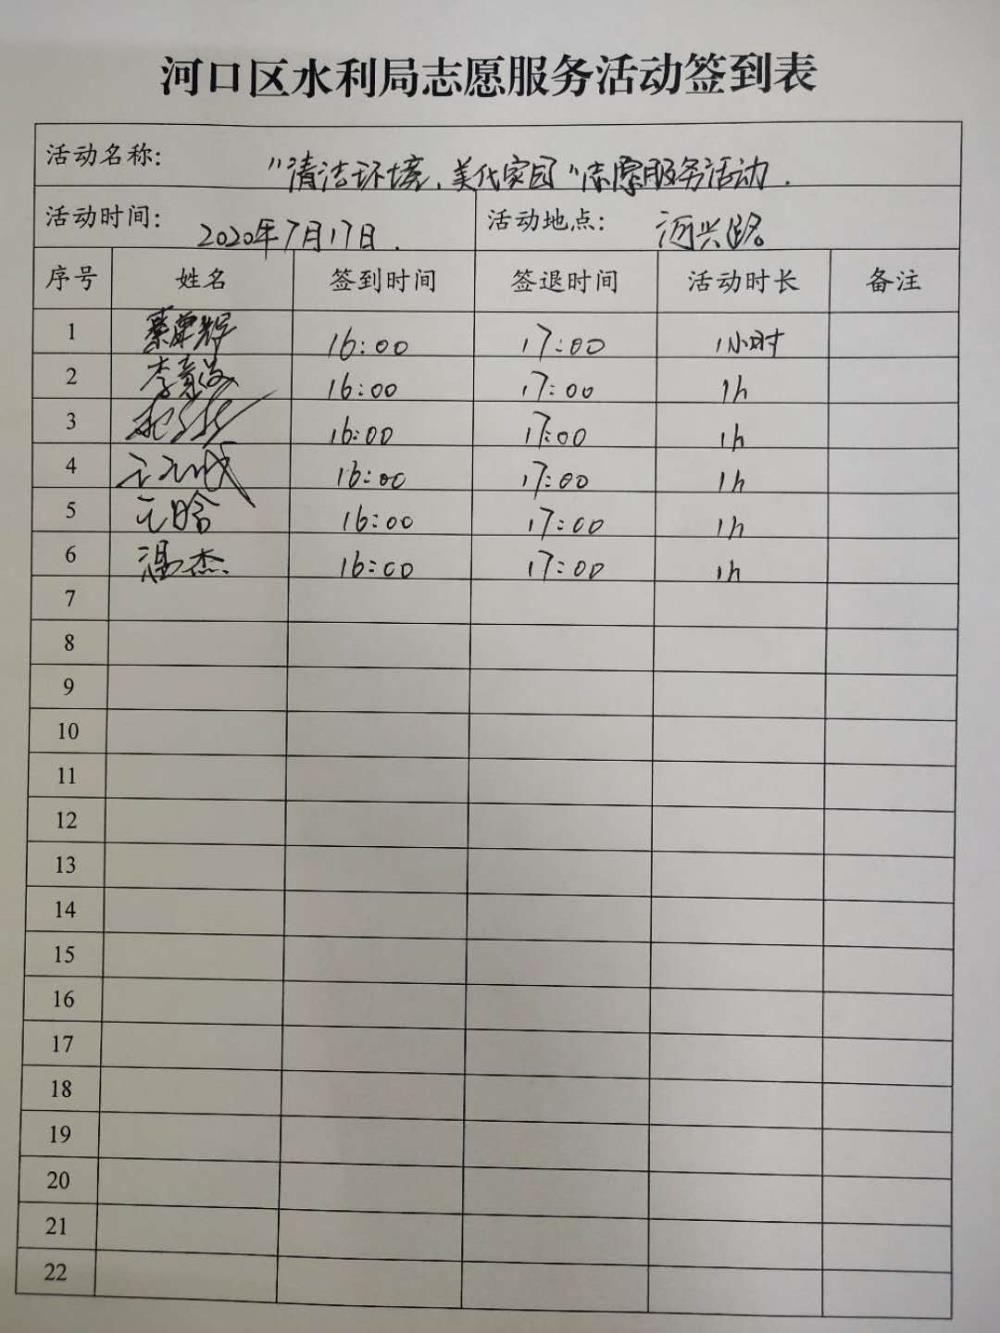 河口区水利局志愿服务活动签到表
活动名称: "清洁环境、美化家园"志愿服务活动.
活动时间: 2020年7月17日. 活动地点: 河兴路
序号 姓名 签到时间 签退时间 活动时长 备注
1 16:00 17:00 1小时
2 16:00 17:00 1h
3 16:00 17:00 1h
4 16:00 17:00 1h
5 王晗 16:00 17:00 1h
6 温杰 16:00 17:00 1h
7
8
9
10
11
12
13
14
15
16
17
18
19
20
21
22